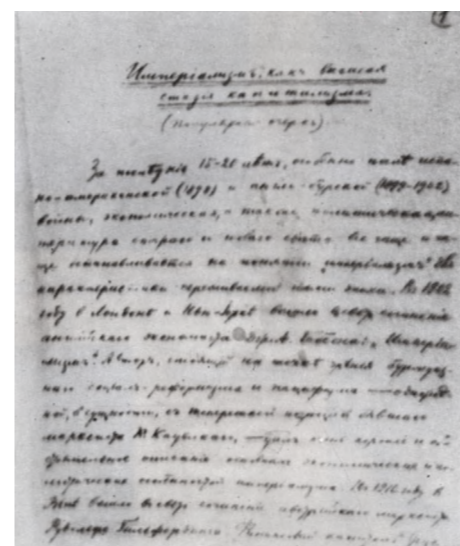 1
Имперіализмъ, какъ высшая
стадія капитализма
(популярный очеркъ).
За послѣднія 15-20 лѣтъ, особенно послѣ испа-
но-американской (1898) и англо-бурской (1899-1902)
войны, экономическая, а также политическая ли-
тература стараго и новаго свѣта все чаще и ча-
ще останавливается на понятіи „имперіализмъ" для
характеристики переживаемой нами эпохи. Въ 1902
году в Лондонѣ и Нью-Іоркѣ вышло въ свѣтъ сочиненіе
английскаго экономиста Дж. А. Гобсона: „Имперіа-
лизмъ". Авторъ, стоящій на точкѣ зрѣнія буржуаз-
наго соціалъ-реформизма и пацифизма
в сущности, съ теперешней позиціей бывшаго
марксиста К. Каутскаго, далъ очень хорошее и об-
стоятельное описаніе основныхъ экономическихъ и по-
литическихъ особенностей имперіализма. Въ 1910 году в
Вѣнѣ вышло въ свѣтъ сочиненіе австрійскаго марксиста
Рудольфа Гильфердинга: „Финансовый капиталъ"